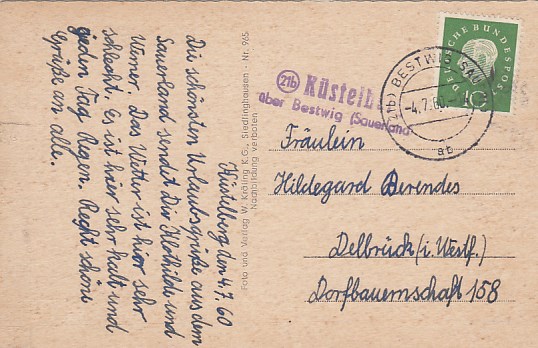 Küstelberg den 4.7.60
Die schönsten Urlaubsgrüße aus dem
Sauerland sendet Dir Klothilde und
Werner. Das Wetter ist hier sehr
schlecht. Es ist hier sehr kalt und
jeden Tag Regen. Recht schöne
Grüße an alle.
Foto und Verlag W. Kröling K.G., Siedlinghausen - Nr. 965
Nachbildung verboten
(21b) Küstelb
über Bestwig (Sauerland
(21b) BESTWIG (SAU
-4.7.60.-
ab
DEUTSCHE BUNDESPOST
10
Fräulein
Hildegard Berendes
Delbrück (i. Westf.)
Dorfbauernschaft 158